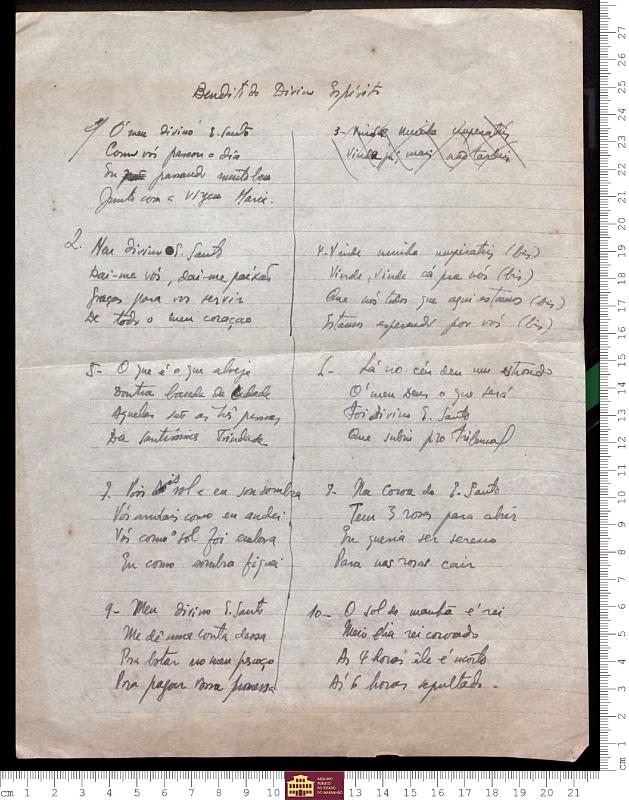 Bendito do Divino Espírito
1) Ó meu divino E. Santo
Como vós passou o dia
Eu passando muito bem
Junto com a virgem Maria.
3- Vinde minha imperatriz
Vinde já, mais não tardeis
2. Meu divino E. Santo
Dai-me vós, dai-me paixão
Graças para vos servir
De todo o meu coração
4- Vinde minha imperatriz (bis)
Vinde, vinde cá pra nós (bis)
Que nós todos que aqui estamos (bis)
Estamos esperando por vós (bis)
5- O que é o que alveja
Doutra banda da cidade
Aquelas são as três pessoas
Da santíssima Trindade
6- Lá no céu deu um estrondo
Ó meu Deus o que será
Foi Divino E. Santo
Que subiu pro tribunal
7. Vós sois sol e eu sou sombra
Vós andais como eu andei
Vós como o sol foi embora
Eu como sombra fiquei
8- Na coroa do E. Santo
Tem 3 rosas para abrir
Eu queria ser sereno
Para nas rosas cair
9- Meu divino E. Santo
Me dê uma conta dessa
Pra botar no meu pescoço
Pra pagar vossa promessa
10- O sol de manhã é rei
Meio dia rei coroado
As 4 horas êle é morto
Ás 6 horas sepultado -
cm 1 2 3 4 5 6 7 8 9 10 13 14 15 16 17 18 19 20 21
ARQUIVO PÚBLICO DO ESTADO DO MARANHÃO